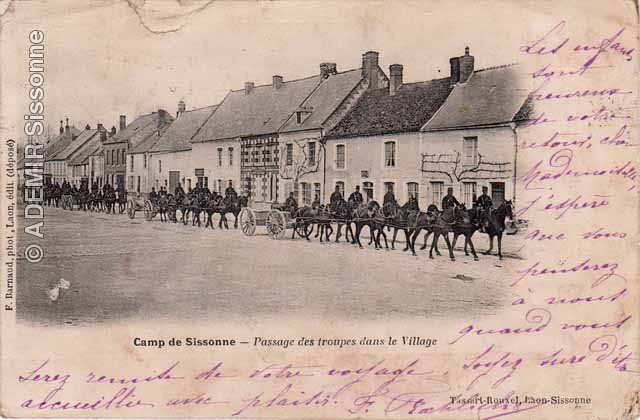 © ADEMIR Sissonne
F. Barnaud, phot., Laon, édit. (déposé)
Les enfants
sont
heureux
de votre
retour, chère
Mademoiselle,
j'espère
que vous
penserez
à moi
quand vous
serez remise de votre voyage. Soyez sûre d'être
accueillie avec plaisir. F.
Camp de Sissonne – Passage des troupes dans le Village
Tassart-Rouxel, Laon-Sissonne